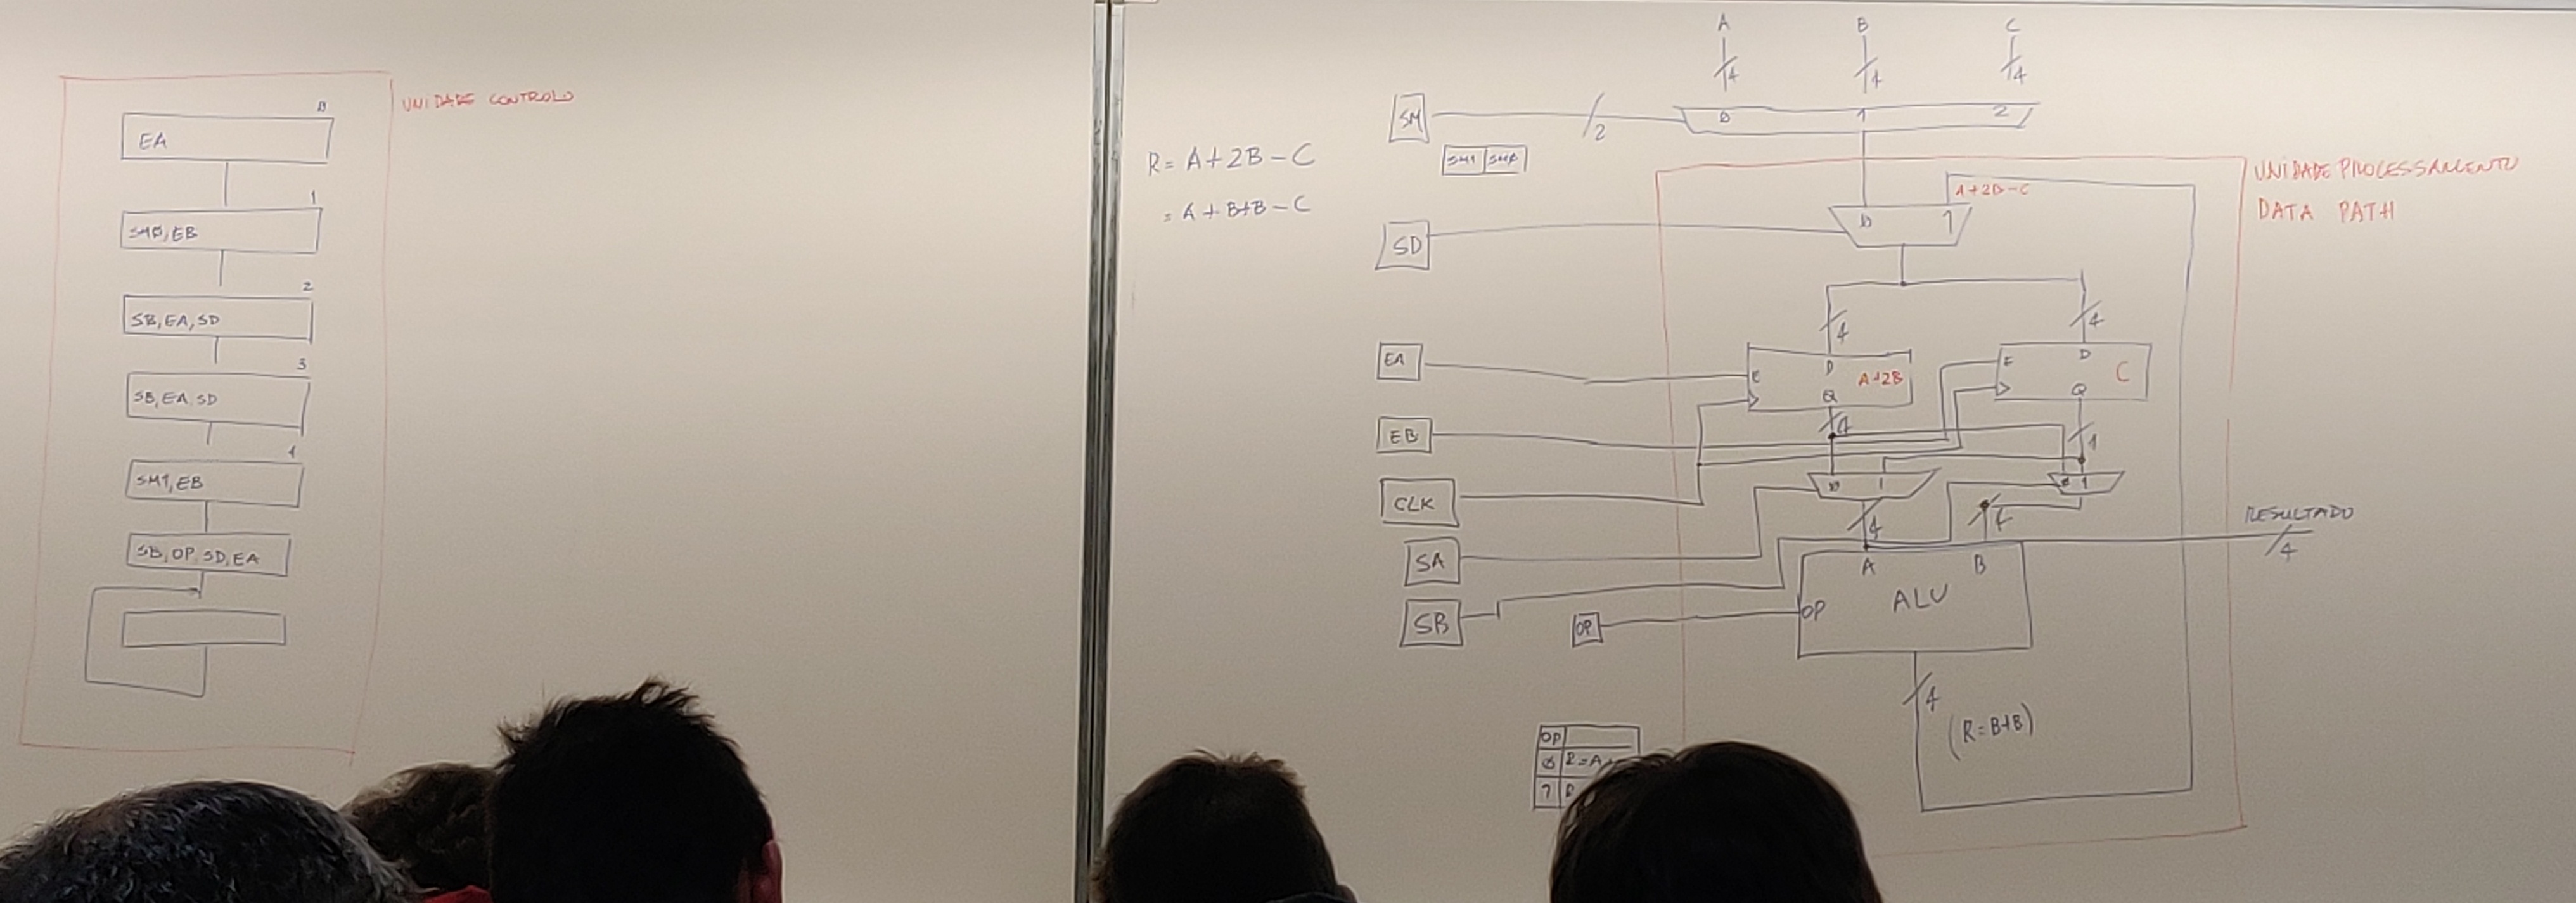 UNIDADE CONTROLO
0
EA
1
SM0, EB
2
SB, EA, SD
3
SB, EA, SD
4
SM1, EB
SB, OP, SD, EA
R = A + 2B - C
= A + B + B - C
A B C
4 4 4
SM
2
0 1 2
SM1 SM0
UNIDADE PROCESSAMENTO
DATA PATH
A+2B-C
SD
0 1
4 4
EA
E D A+2B
Q
E D C
Q
4
EB
CLK
0 1
0 1
4
RESULTADO
4
SA
A B
SB
OP
OP ALU
4
(R=B+B)
OP
0 R=A+
1 R